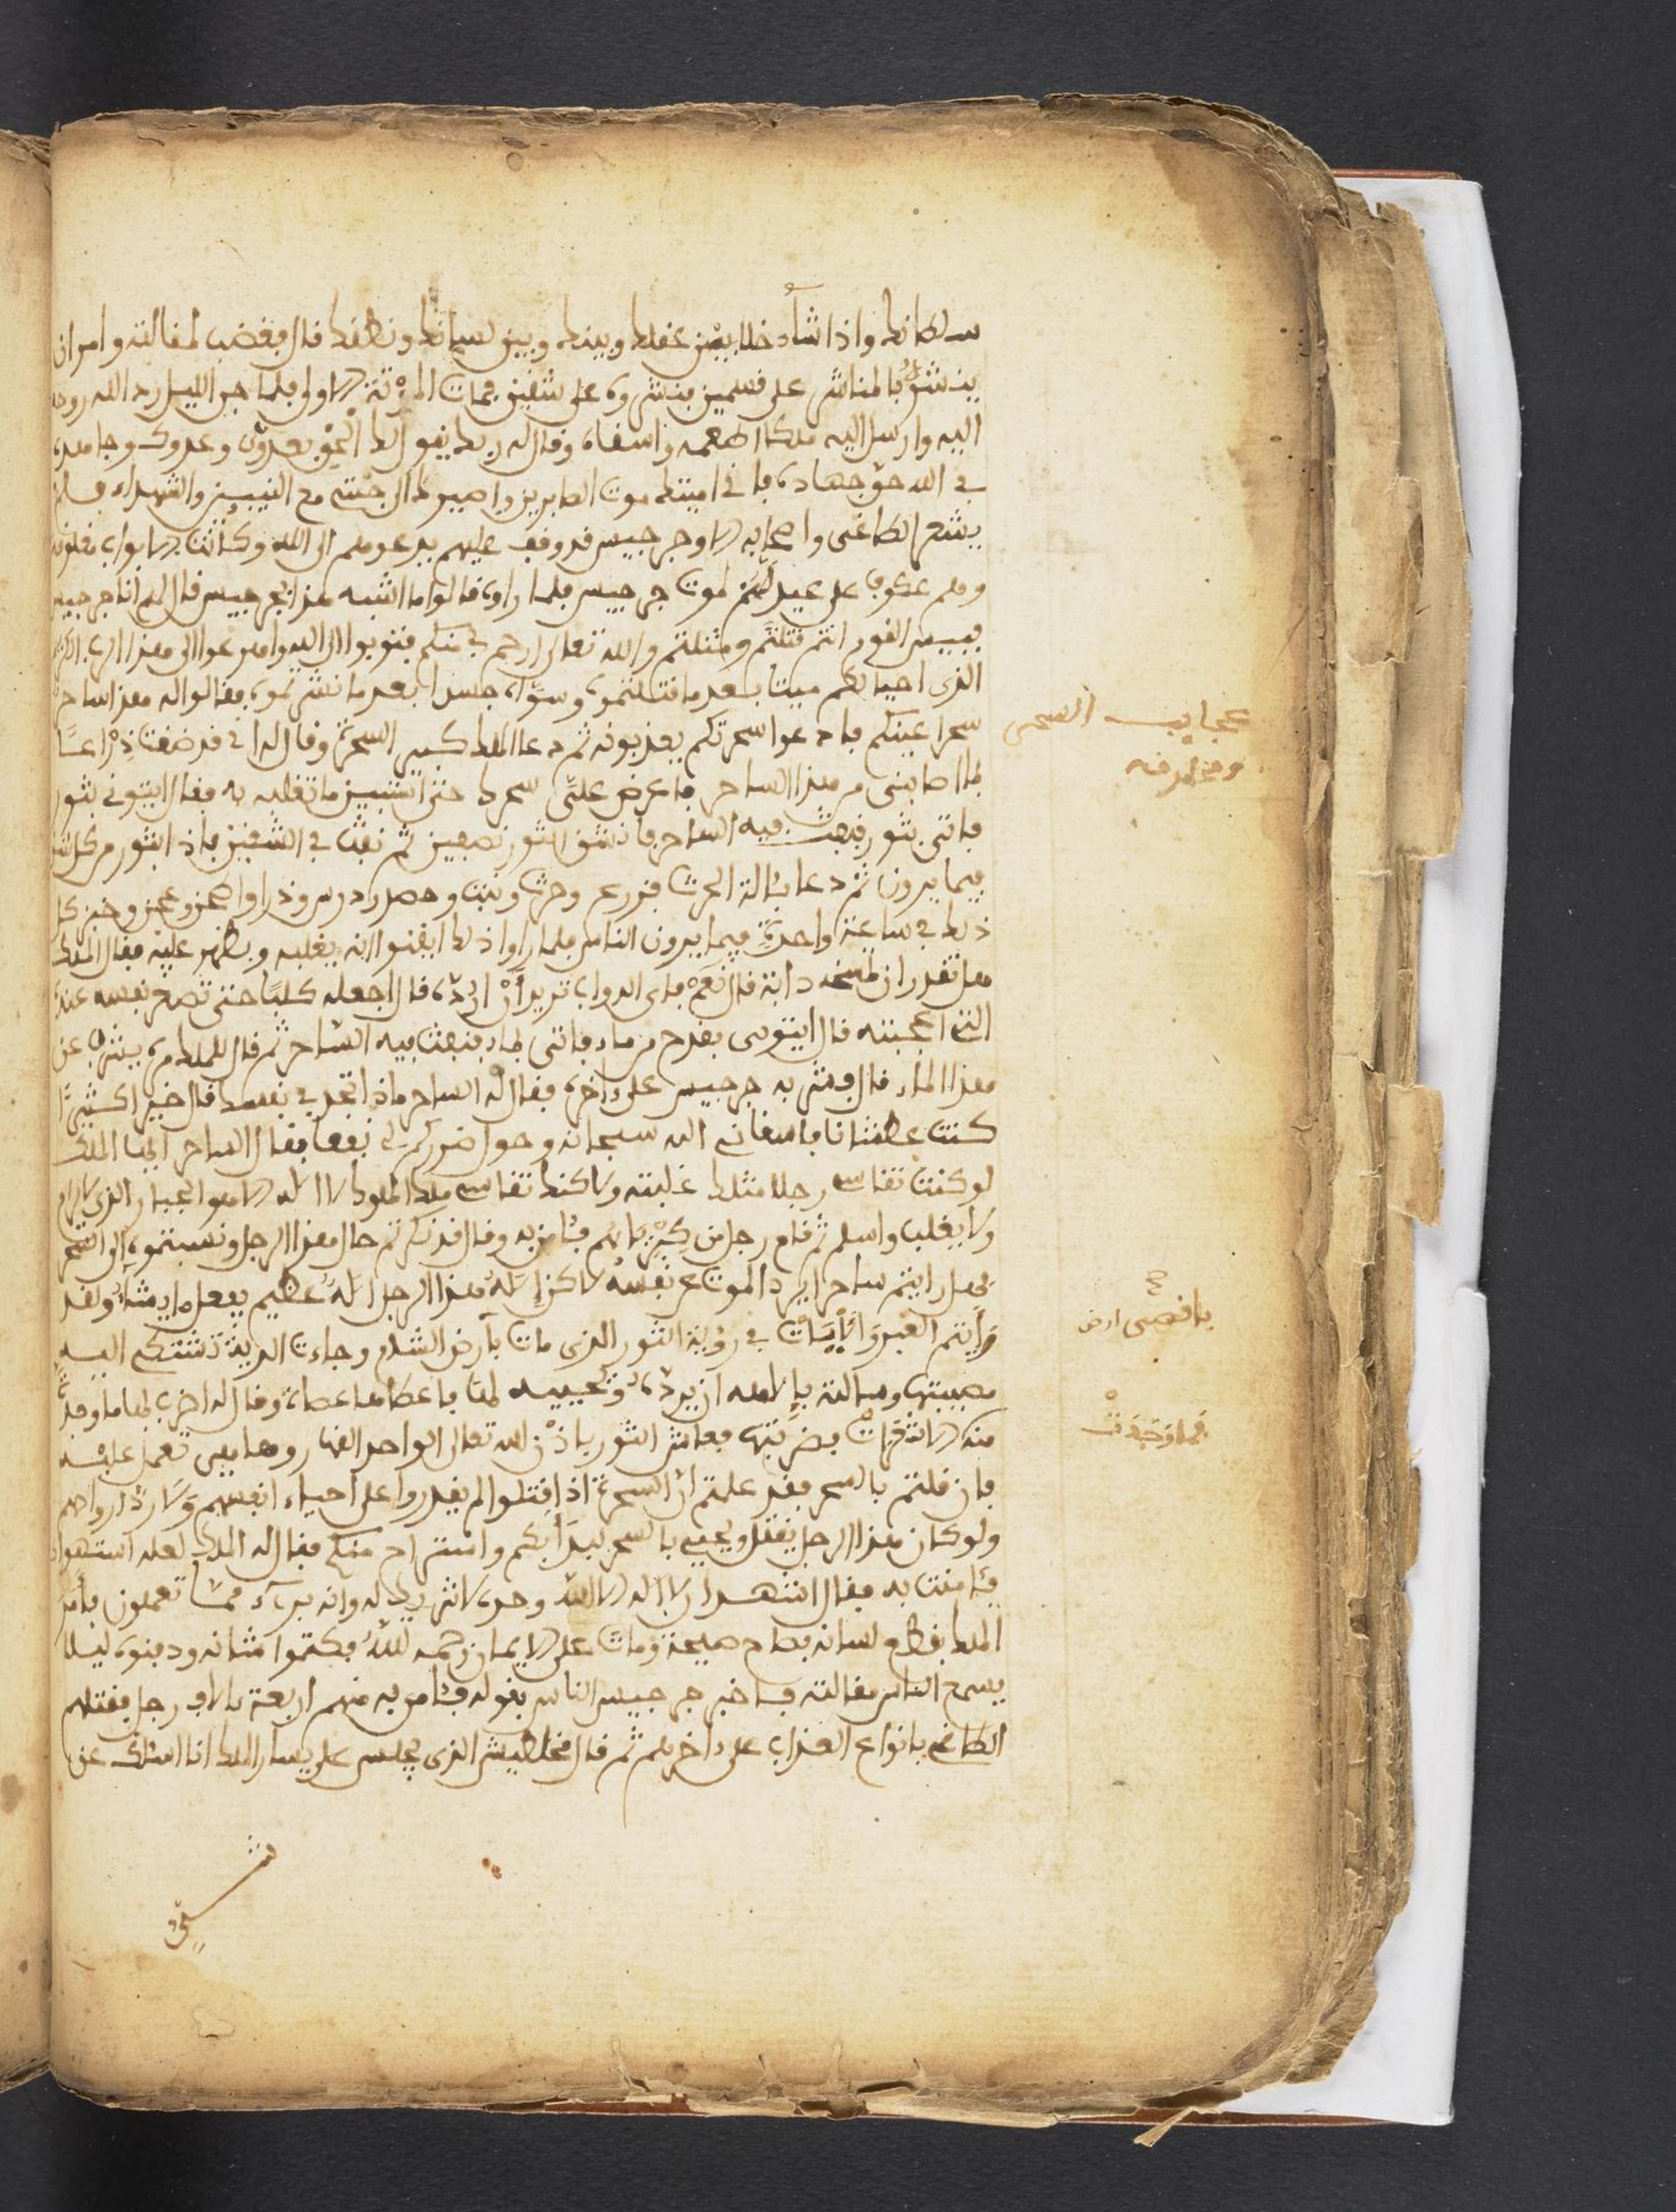 سلطانك واذا شاء خلا بين عقلك وبينك وبين لسانك ونطقك قال فغضب لمقالته وامر ان
ينشر بالمناشر على قسمين فنشروه على شقين فمات الموتة الاولى فلما جن الليل رد الله روحه
اليه وارسل اليه ملكا اطعمه واسقاه وقال له ربك يقول لك الحق بعدوي وعدوك وجاهده
في الله حق جهاده فاني اميتك موت الصابرين واصيرك الى جنتي مع النبيين والشهداء فلم
يشعر الطاغي واصحابه الا وجرجيس قد وقف عليهم يدعوهم الى الله وكانت الابواب مغلوقة
وهم عكوف على عيد لهم لموت جرجيس فلما راوه قالوا ما اشبه هذا بجرجيس قال لهم انا جرجيس
فبيس القوم انتم قتلتم ومثلتم والله تعالى ارحم بي منكم فتوبوا الى الله وامرعوا الى هذا الرب الكريم
الذي احيا لكم ميتا بعد ما قتلتموه وسواه جسدا بعد ما نشرتموه فقالوا له هذا ساحر
سحر اعينكم فادعوا سحرتكم يعذبونه ثم دعا الملك كبير السحرة وقال له اني قد ضقت ذرعا
لما اصابني من هذا الساحر فاعرض علي سحرك حتى استبين ما تغلبه به فقال ايتوني بثور
فاتي بثور فنفث فيه الساحر فانشق الثور نصفين ثم نفث في الشقين فاذا بثور من كل شق
فيما يرون ثم دعا بالة الحرث فزرع وحرث ونبت وحصد ودرس وذرا وطحن وعجن وخبز كل
ذلك في ساعة واحدة فيما يرون الناس فلما راوا ذلك ايقنوا انه يغلبه ويظهر عليه فقال الملك
هل تقدر ان تمسخه دابة قال نعم فاي الدواب تريد ان ارده قال اجعله كلبا حتى تصغر نفسه عنده
التي اعجبته قال ايتوني بقدح من ماء فاتي بماء فنفث فيه الساحر ثم قال للملك مره يشرب من
هذا الماء قال فشربه جرجيس على ءاخره فقال له الساحر ماذا تجد في نفسك قال خيرا كثيرا
كنت عطشانا فاسقاني الله سبحانه وحول ضركم لي نفعا فقال الساحر ايها الملك
لو كنت تقاسي رجلا مثلك غلبته ولاكنك تقاسي ملك الملوك لا اله الا هو الجبار الذي لا يرام
ولا يغلب واسلم ثم قام رجل من كبريائهم فئامن به وقال قد ذكرتم حال هذا الرجل ونسبتموه الى السحر
فهل رايتم ساحرا يرد الموت عن نفسه لاكن اله هذا الرجل اله عظيم يفعل ما يشاء ولقد
رايتم العبر والايات في رؤية الثور الذي مات بارض الشام وجاءت الديثة تشتكي اليه
مصيبتها وسالته بالاهه ان يرده ويحييه لها فاعطاها عصاه وقال لها اضرب بها ما وجدت
منه الا شعرات فضربتها فعاش الثور باذن الله تعالى الواحد القهار وها هي تعمل عليه
فان قلتم بالسحر فقد علمتم ان السحرة اذا قتلوا لم يقدروا على احياء انفسهم ولا رد ارواحهم
ولو كان هذا الرجل يقتل ويحيي بالسحر لبدا بكم واستراح منكم فقال له الملك لعله استهواك
فئامنت به فقال اشهد ان لا اله الا الله وحده لا شريك له وانه بريء مما تعملون فامر
الملك بقطع لسانه فصاح صيحة ومات على الايمان رحمه الله فكتموا شانه ودفنوه ليلا
يسمع الناس مقالته فاخبر جرجيس الناس بقوله فئامن به منهم اربعة ءالاف رجل فقتلهم
الطاغي بانواع العذاب على ءاخرهم ثم قال مخلطيش الذي يجلس على يسار الملك انا اسئلك عن
عجايب السحر
ومخارفه
بافصى ارض
فما وجدت
شيء